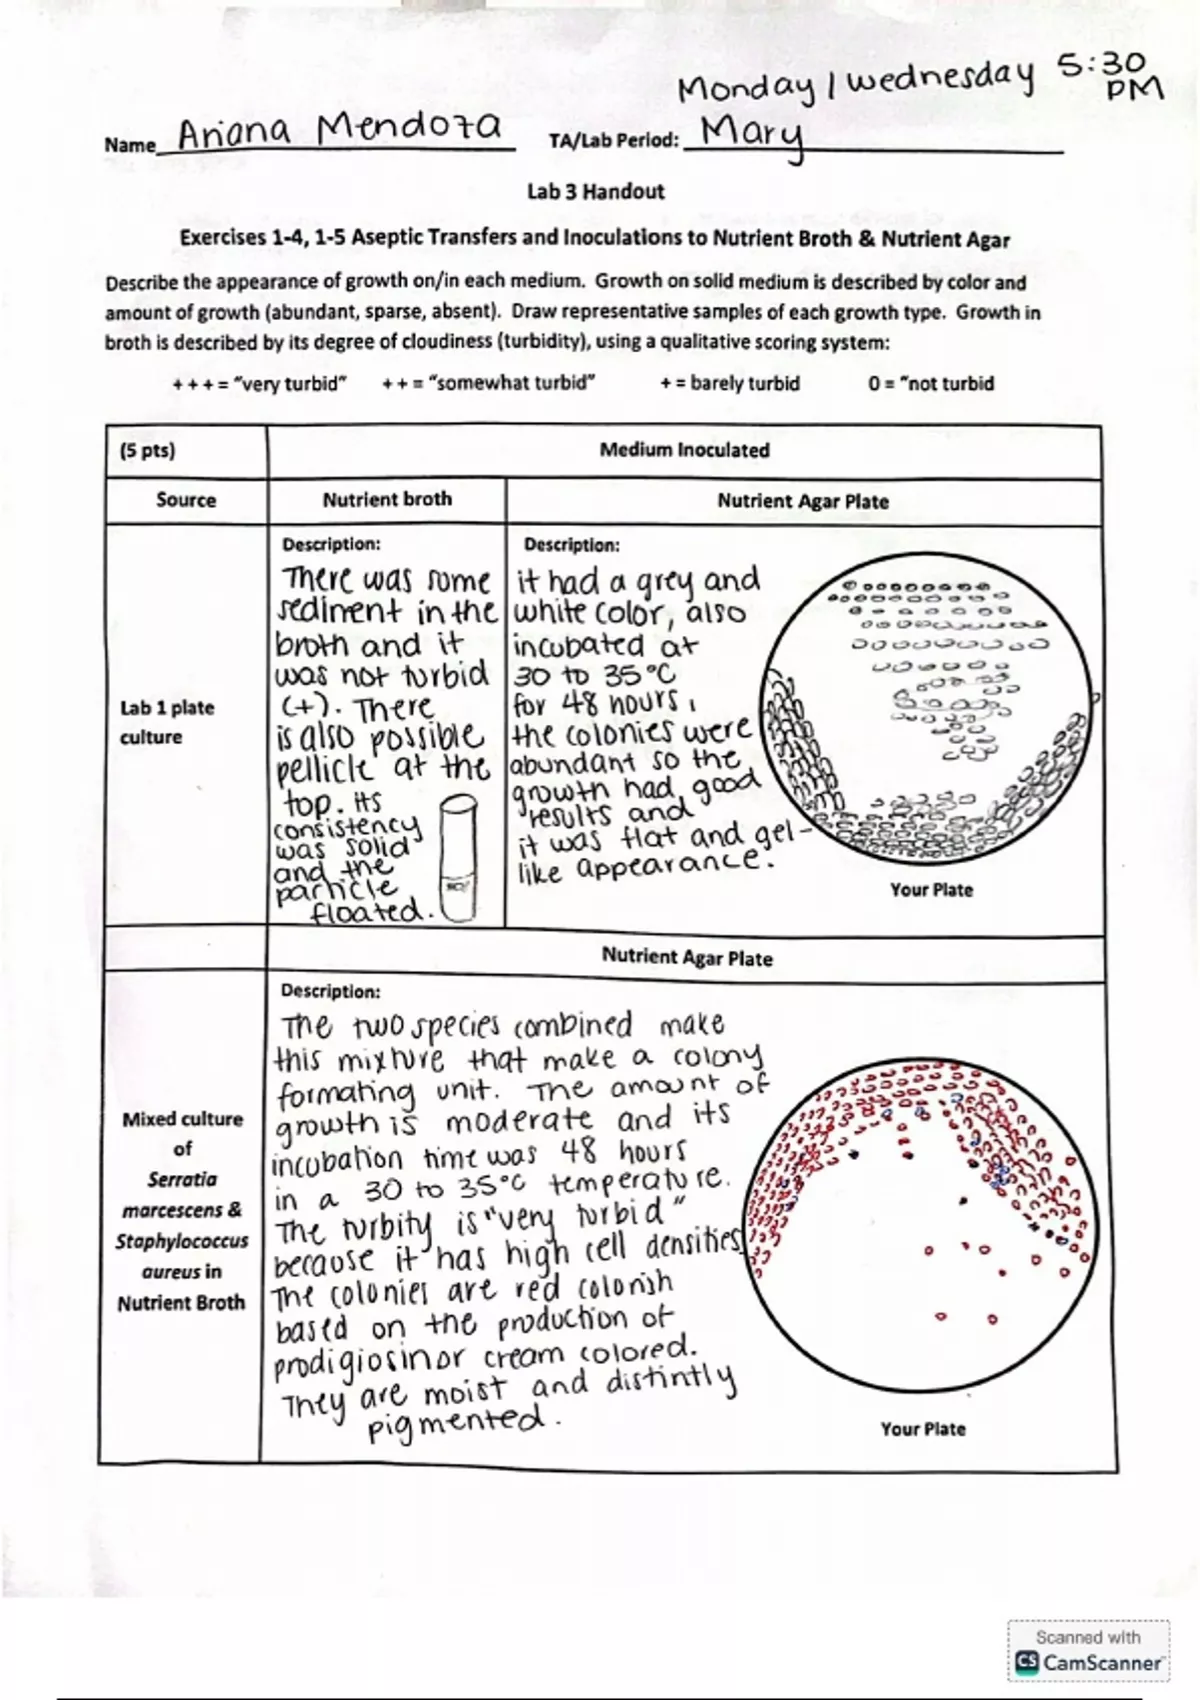 Monday / Wednesday 5:30 PM
Name Ariana Mendoza TA/Lab Period: Mary
Lab 3 Handout
Exercises 1-4, 1-5 Aseptic Transfers and Inoculations to Nutrient Broth & Nutrient Agar
Describe the appearance of growth on/in each medium. Growth on solid medium is described by color and
amount of growth (abundant, sparse, absent). Draw representative samples of each growth type. Growth in
broth is described by its degree of cloudiness (turbidity), using a qualitative scoring system:
+ + + = "very turbid" + + = "somewhat turbid" + = barely turbid 0 = "not turbid
(5 pts) Medium Inoculated
Source Nutrient broth Nutrient Agar Plate
Lab 1 plate
culture
Description:
There was some
sediment in the
broth and it
was not turbid
(+). There
is also possible
pellicle at the
top. its
consistency
was solid
and the
particle
floated.
Description:
it had a grey and
white color, also
incubated at
30 to 35 °C
for 48 hours,
the colonies were
abundant so the
growth had good
results and
it was flat and gel-
like appearance.
Your Plate
Nutrient Agar Plate
Mixed culture
of
Serratia
marcescens &
Staphylococcus
aureus in
Nutrient Broth
Description:
The two species combined make
this mixture that make a colony
formating unit. The amount of
growth is moderate and its
incubation time was 48 hours
in a 30 to 35°C temperature.
The turbity is "very turbid"
because it has high cell densities
The colonies are red colorish
based on the production of
prodigiosin or cream colored.
They are moist and distintly
pigmented.
Your Plate
Scanned with
CS CamScanner